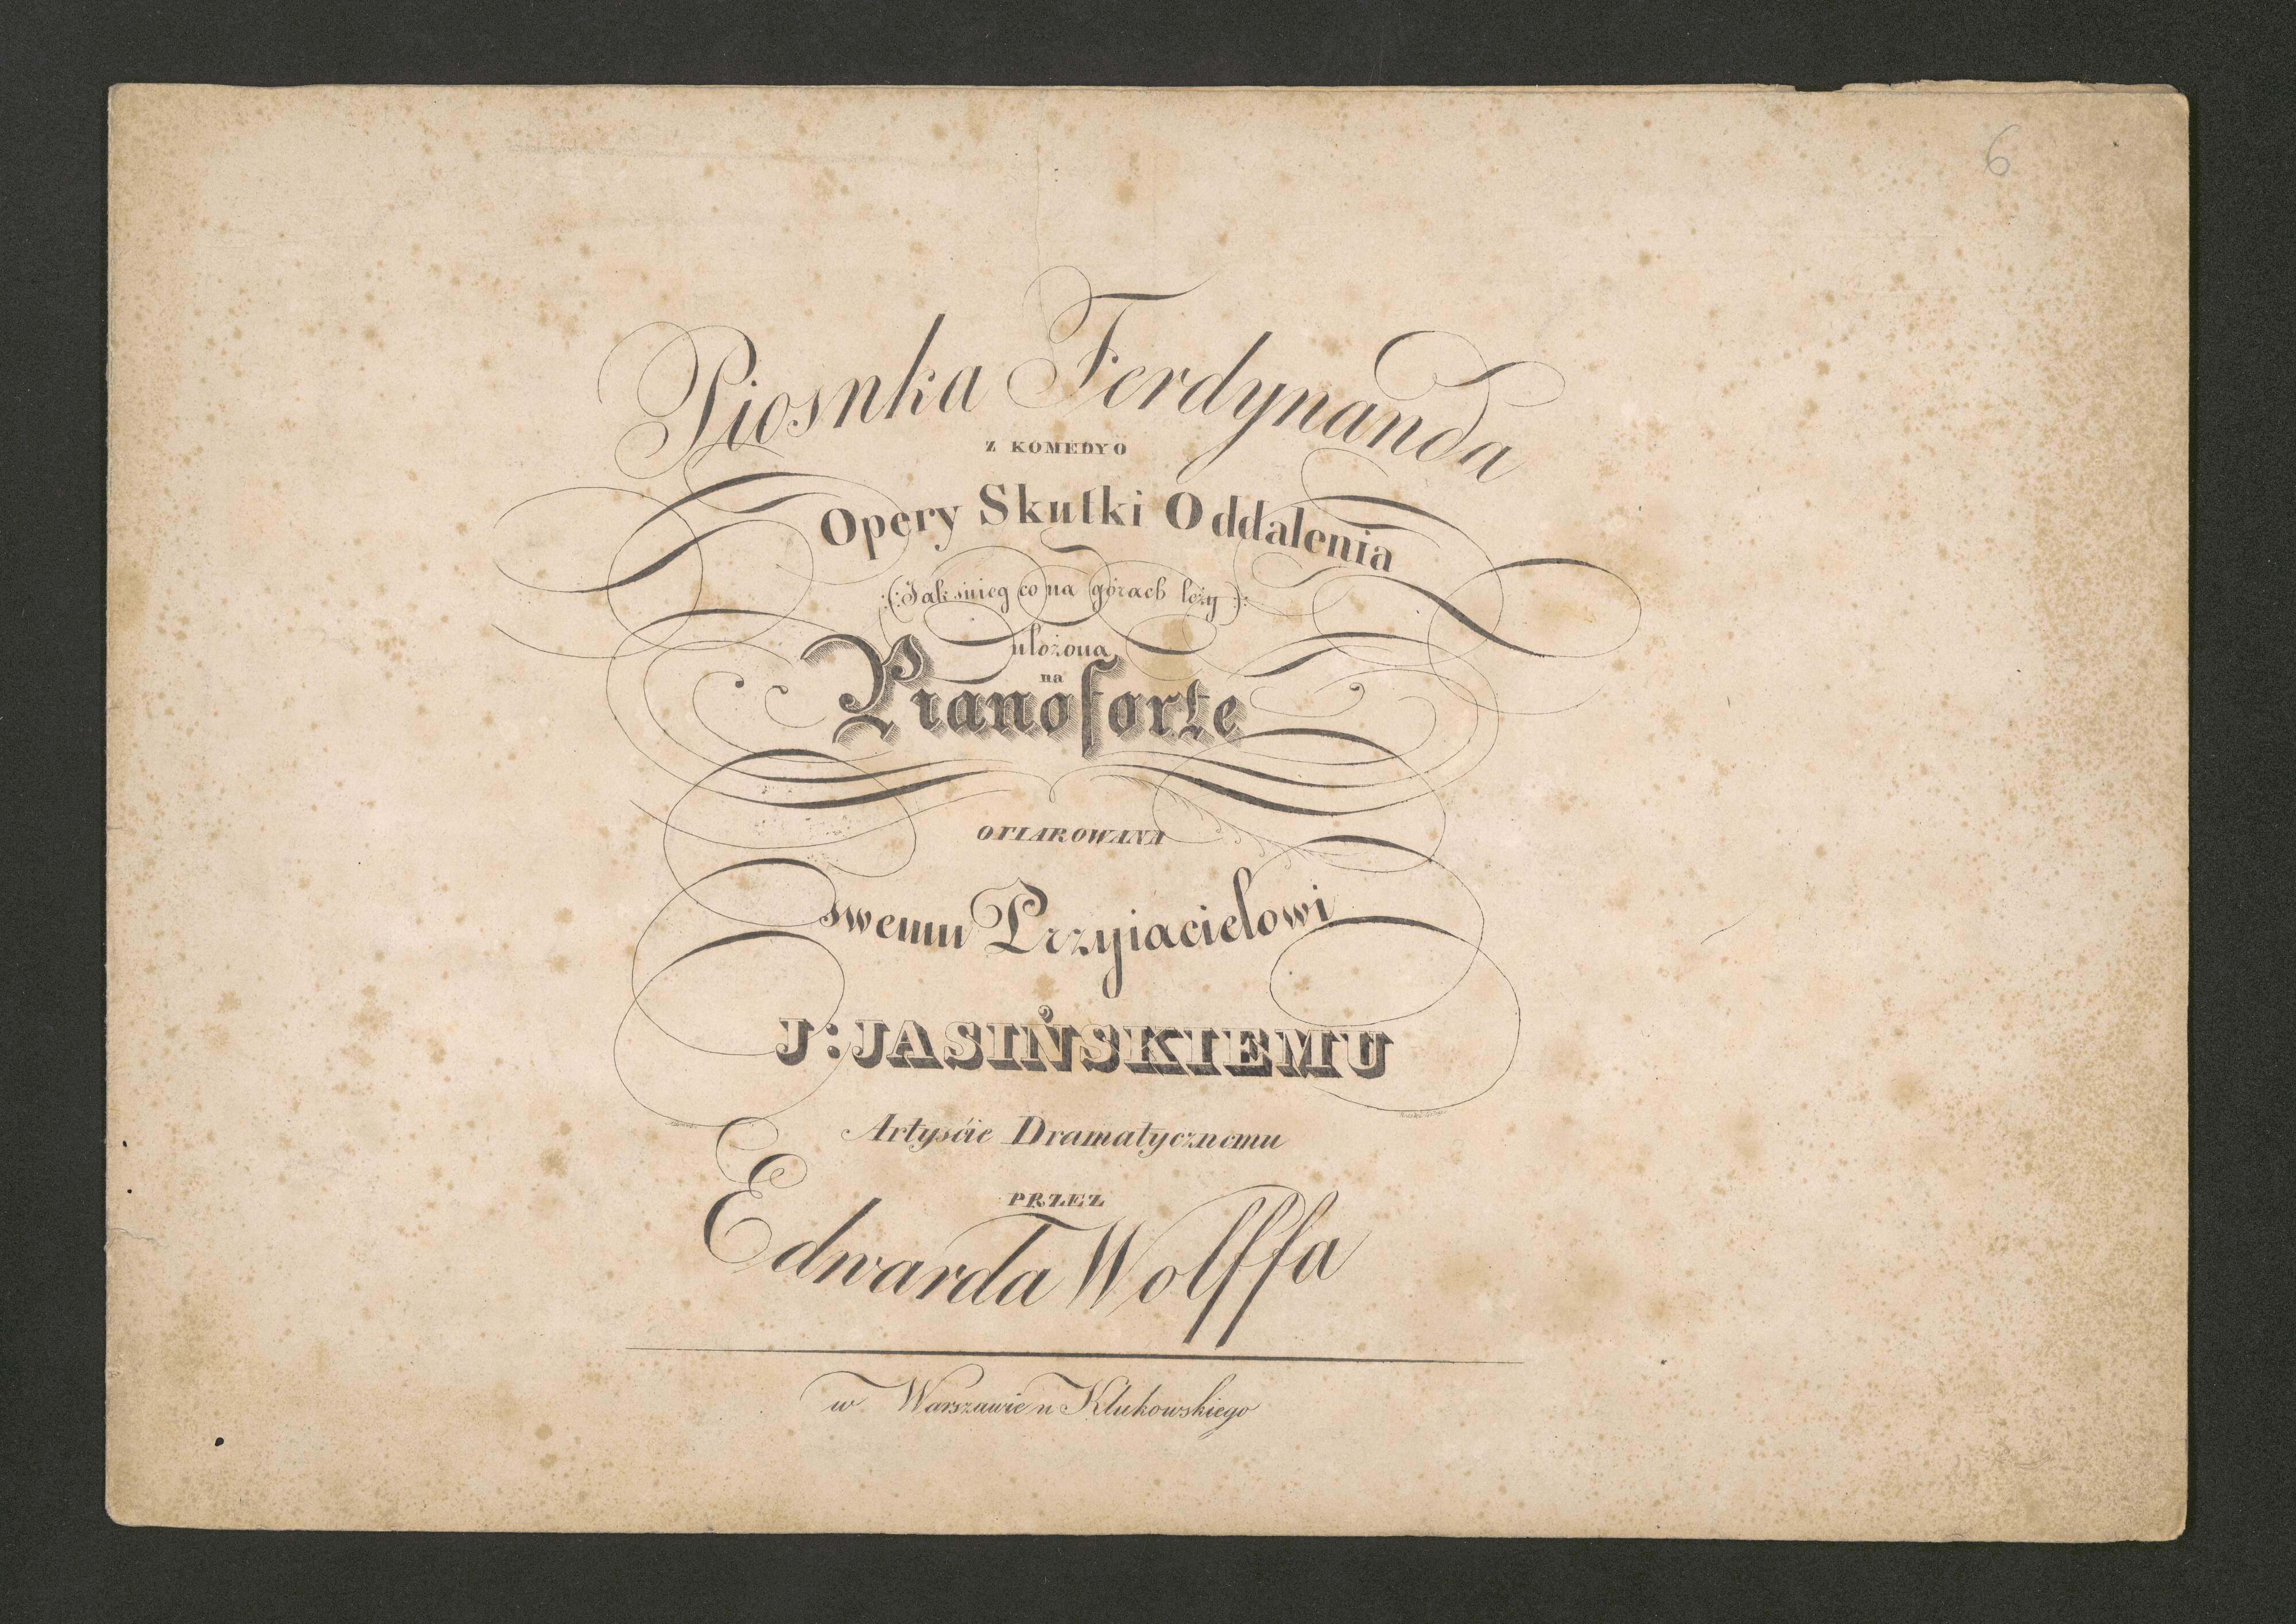 6
Piosnka Ferdynanda
Z KOMEDYO
Opery Skutki Oddalenia
(: Jak snieg co na górach leży :)
ułożona
na
Pianoforte
OFIAROWANA
swemu Przyiacielowi
J: JASIŃSKIEMU
Artyscie Dramatycznemu
PRZEZ
Edwarda Wolffa
w Warszawie u Klukowskiego